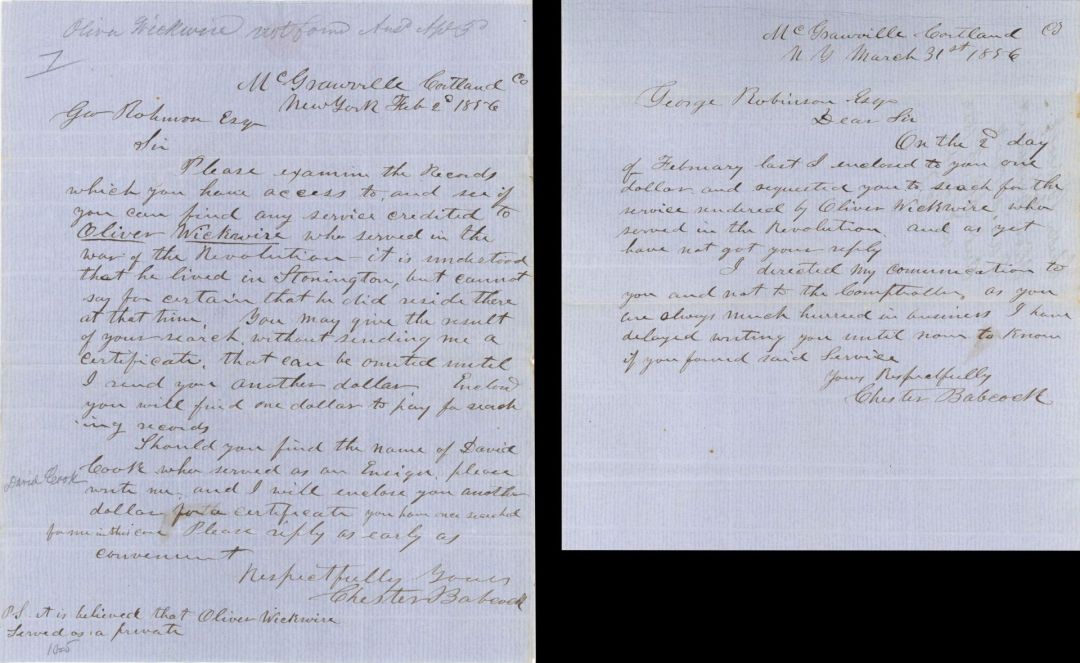 Oliver Wickwire not found Ansd Apl 5d
McGrawville Cortland Co
New York Feb 2d 1856
Geo Robinson Esq
Sir
Please examine the Records
which you have access to, and see if
you can find any service credited to
Oliver Wickwire who served in the
war of the Revolution - it is understood
that he lived in Stonington, but cannot
say for certain that he did reside there
at that time. You may give the result
of your search, without sending me a
certificate, that can be omited until
I send you another dollar. Enclosd
you will find one dollar to pay for seach
ing records
Should you find the name of David
Cook who served as an Ensign, please
David Cook
write me, and I will enclose you another
dollar for a certificate you have once searched
for me in this case Please reply as early as
convenient
Respectfully Yours
Chester Babcock
P.S. it is believed that Oliver Wickwire
Served as a private
McGrawville Cortland Co
N Y March 31st 1856
George Robinson Esq
Dear Sir
On the 2d day
of February last I enclosed to you one
dollar and requested you to seach for the
service rendered by Oliver Wickwire, who
served in the Revolution, and as yet
have not got your reply
I directed my comunication to
you and not to the Comptroller, as you
are always much hurred in business I have
delayed writing you until now to know
if you found said Service
Yours Respectfully
Chester Babcock